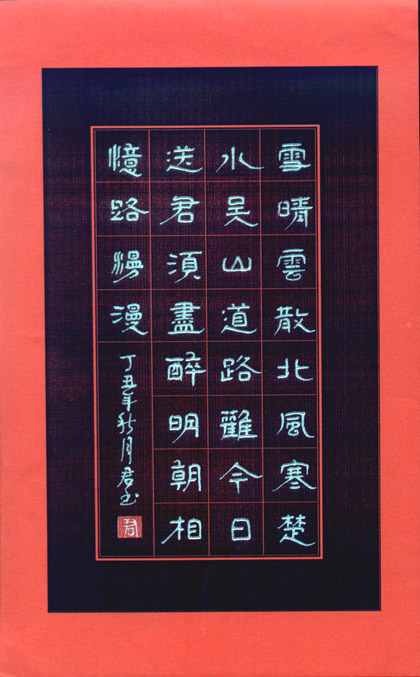 雪晴雲散北風寒楚
水吴山道路難今日
送君須盡醉明朝相
憶路漫漫
丁丑年秋月君书
君